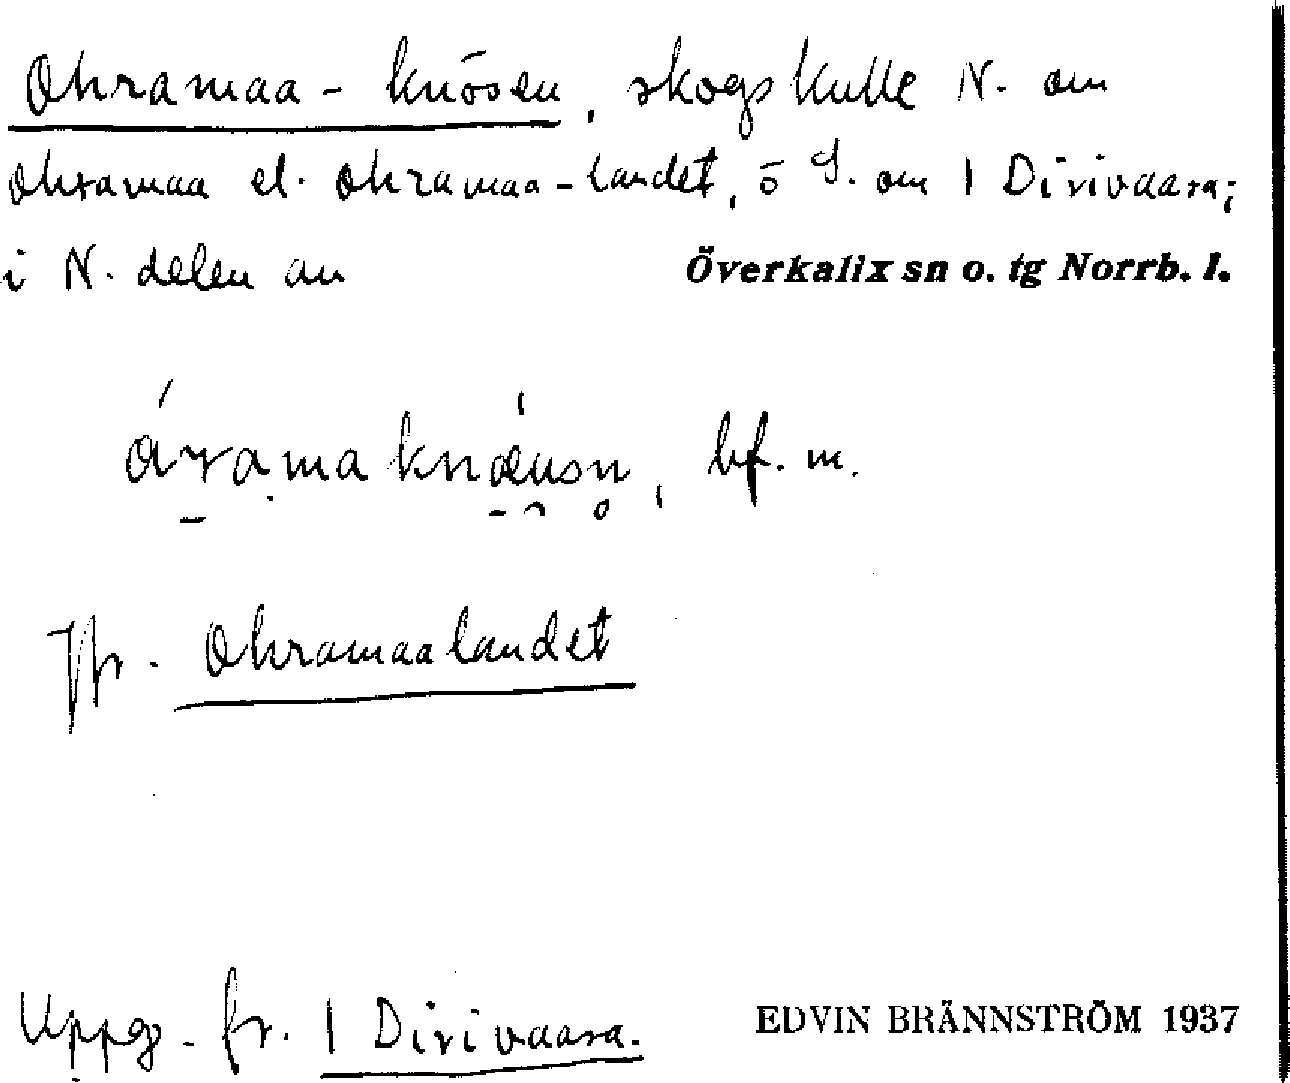 Ohramaa-knösen, skogskulle N. om
Ohramaa el. Ohramaa-landet, ö S. om 1 Dirivaara;
i N. delen av
Överkalix sn o. tg Norrb. l.
áramaknäusn, bf. m.
Jfr. Ohramaalandet
Uppg. fr. 1 Dirivaara.
EDVIN BRÄNNSTRÖM 1937